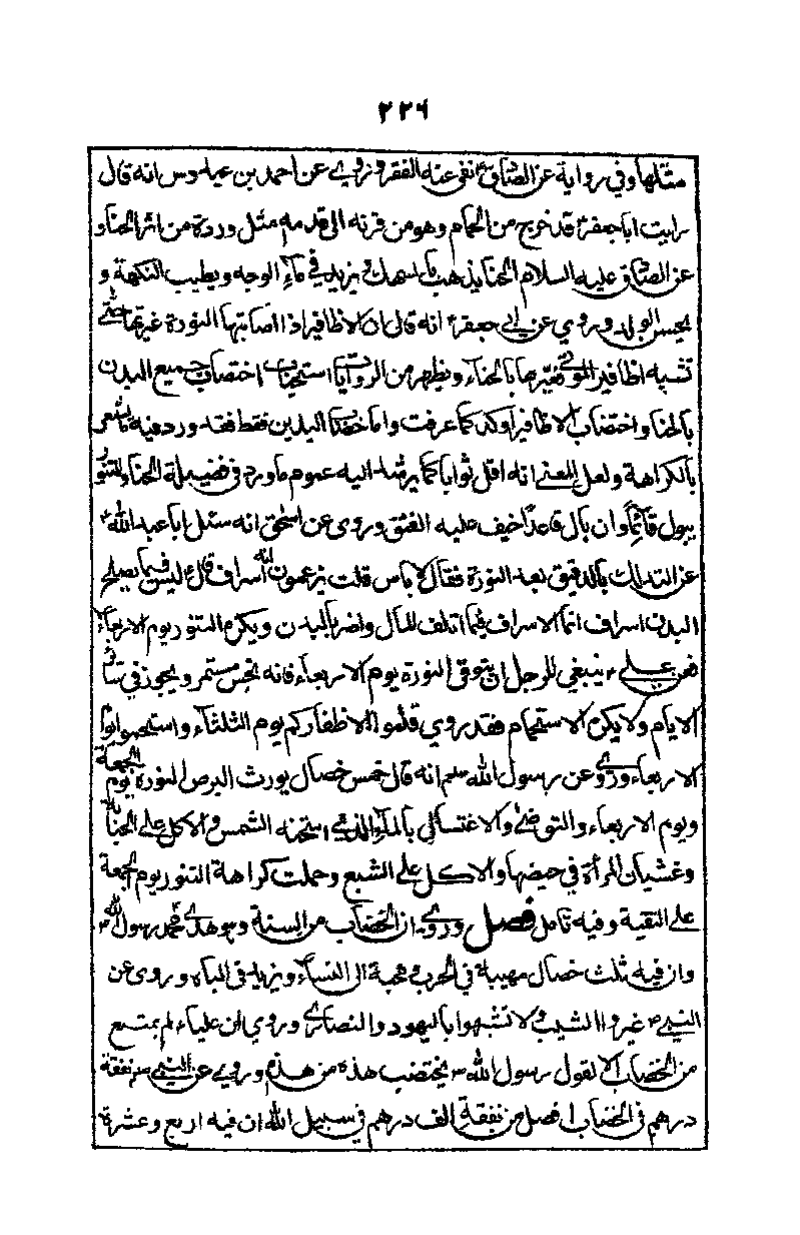 ٢٢٦
مثلها وفي رواية عن الصادق ع انفى عنه الفقر وروي عن احمد بن عبدوس انه قال
رايت ابا جعفر ع قد خرج من الحمام وهو من قرنه الى قدمه مثل وردة من اثر الحناء و
عن الصادق عليه السلام الحناء يذهب بالسهك ويزيد في ماء الوجه ويطيب النكهة و
يحسن الولد وروي عن ابي جعفر ع انه قال ان الاظافير اذا اصابتها النورة غيرتها حتى
تشبه اظافير الموتى فغيرها بالحناء ويظهر من الروايات استحباب اختضاب جميع البدن
بالحناء واختضاب الاظافير اوكد كما عرفت واما خضاب اليدين فقط فقد ورد فيه ما يشعر
بالكراهة ولعل المعنى انه اقل ثوابا كما يرشد اليه عموم ما ورد في فضيلة الحناء والمتنور
يبول قائما وان بال قاعدا خيف عليه الفتق وروى عن اسحق انه سئل ابا عبد الله ع
عن التدلك بالدقيق بعد النورة فقال لا باس قلت يزعمون انه اسراف قال ليس فيما يصلح
البدن اسراف انما الاسراف فيما اتلف المال واضر بالبدن ويكره التنور يوم الاربعاء
فعن علي ع ينبغي للرجل ان يتوقى النورة يوم الاربعاء فانه نحس مستمر ويجوز في سائر
الايام ولا يكره الاستحمام فقد روي قلموا الاظفاركم يوم الثلثاء واستحموا يوم
الاربعاء وروى عن رسول الله صلعم انه قال خمس خصال يورث البرص النورة يوم الجمعة
ويوم الاربعاء والتوضي والاغتسال بالماء الذي استحنه الشمس والاكل على الجنابة
وغشيان المراة في حيضها والاكل على الشبع وحملت كراهة التنور يوم الجمعة
على التقية وفيه تامل فصل وروي ان الخضاب من السنة وهو هدى محمد رسول الله ص
وان فيه ثلث خصال مهيبة في الحرب ومحبة الى النساء ويزيد في الباه وروى عن
النبي ص غيروا الشيب ولا تشبهوا باليهود والنصارى وروي ان عليا ع لم يمتنع
من الخضاب الا لقول رسول الله ص يختضب هذه من هذه وروي عن النبي صلعم نفقة
درهم في الخضاب افضل من نفقة الف درهم في سبيل الله ان فيه اربع وعشرة